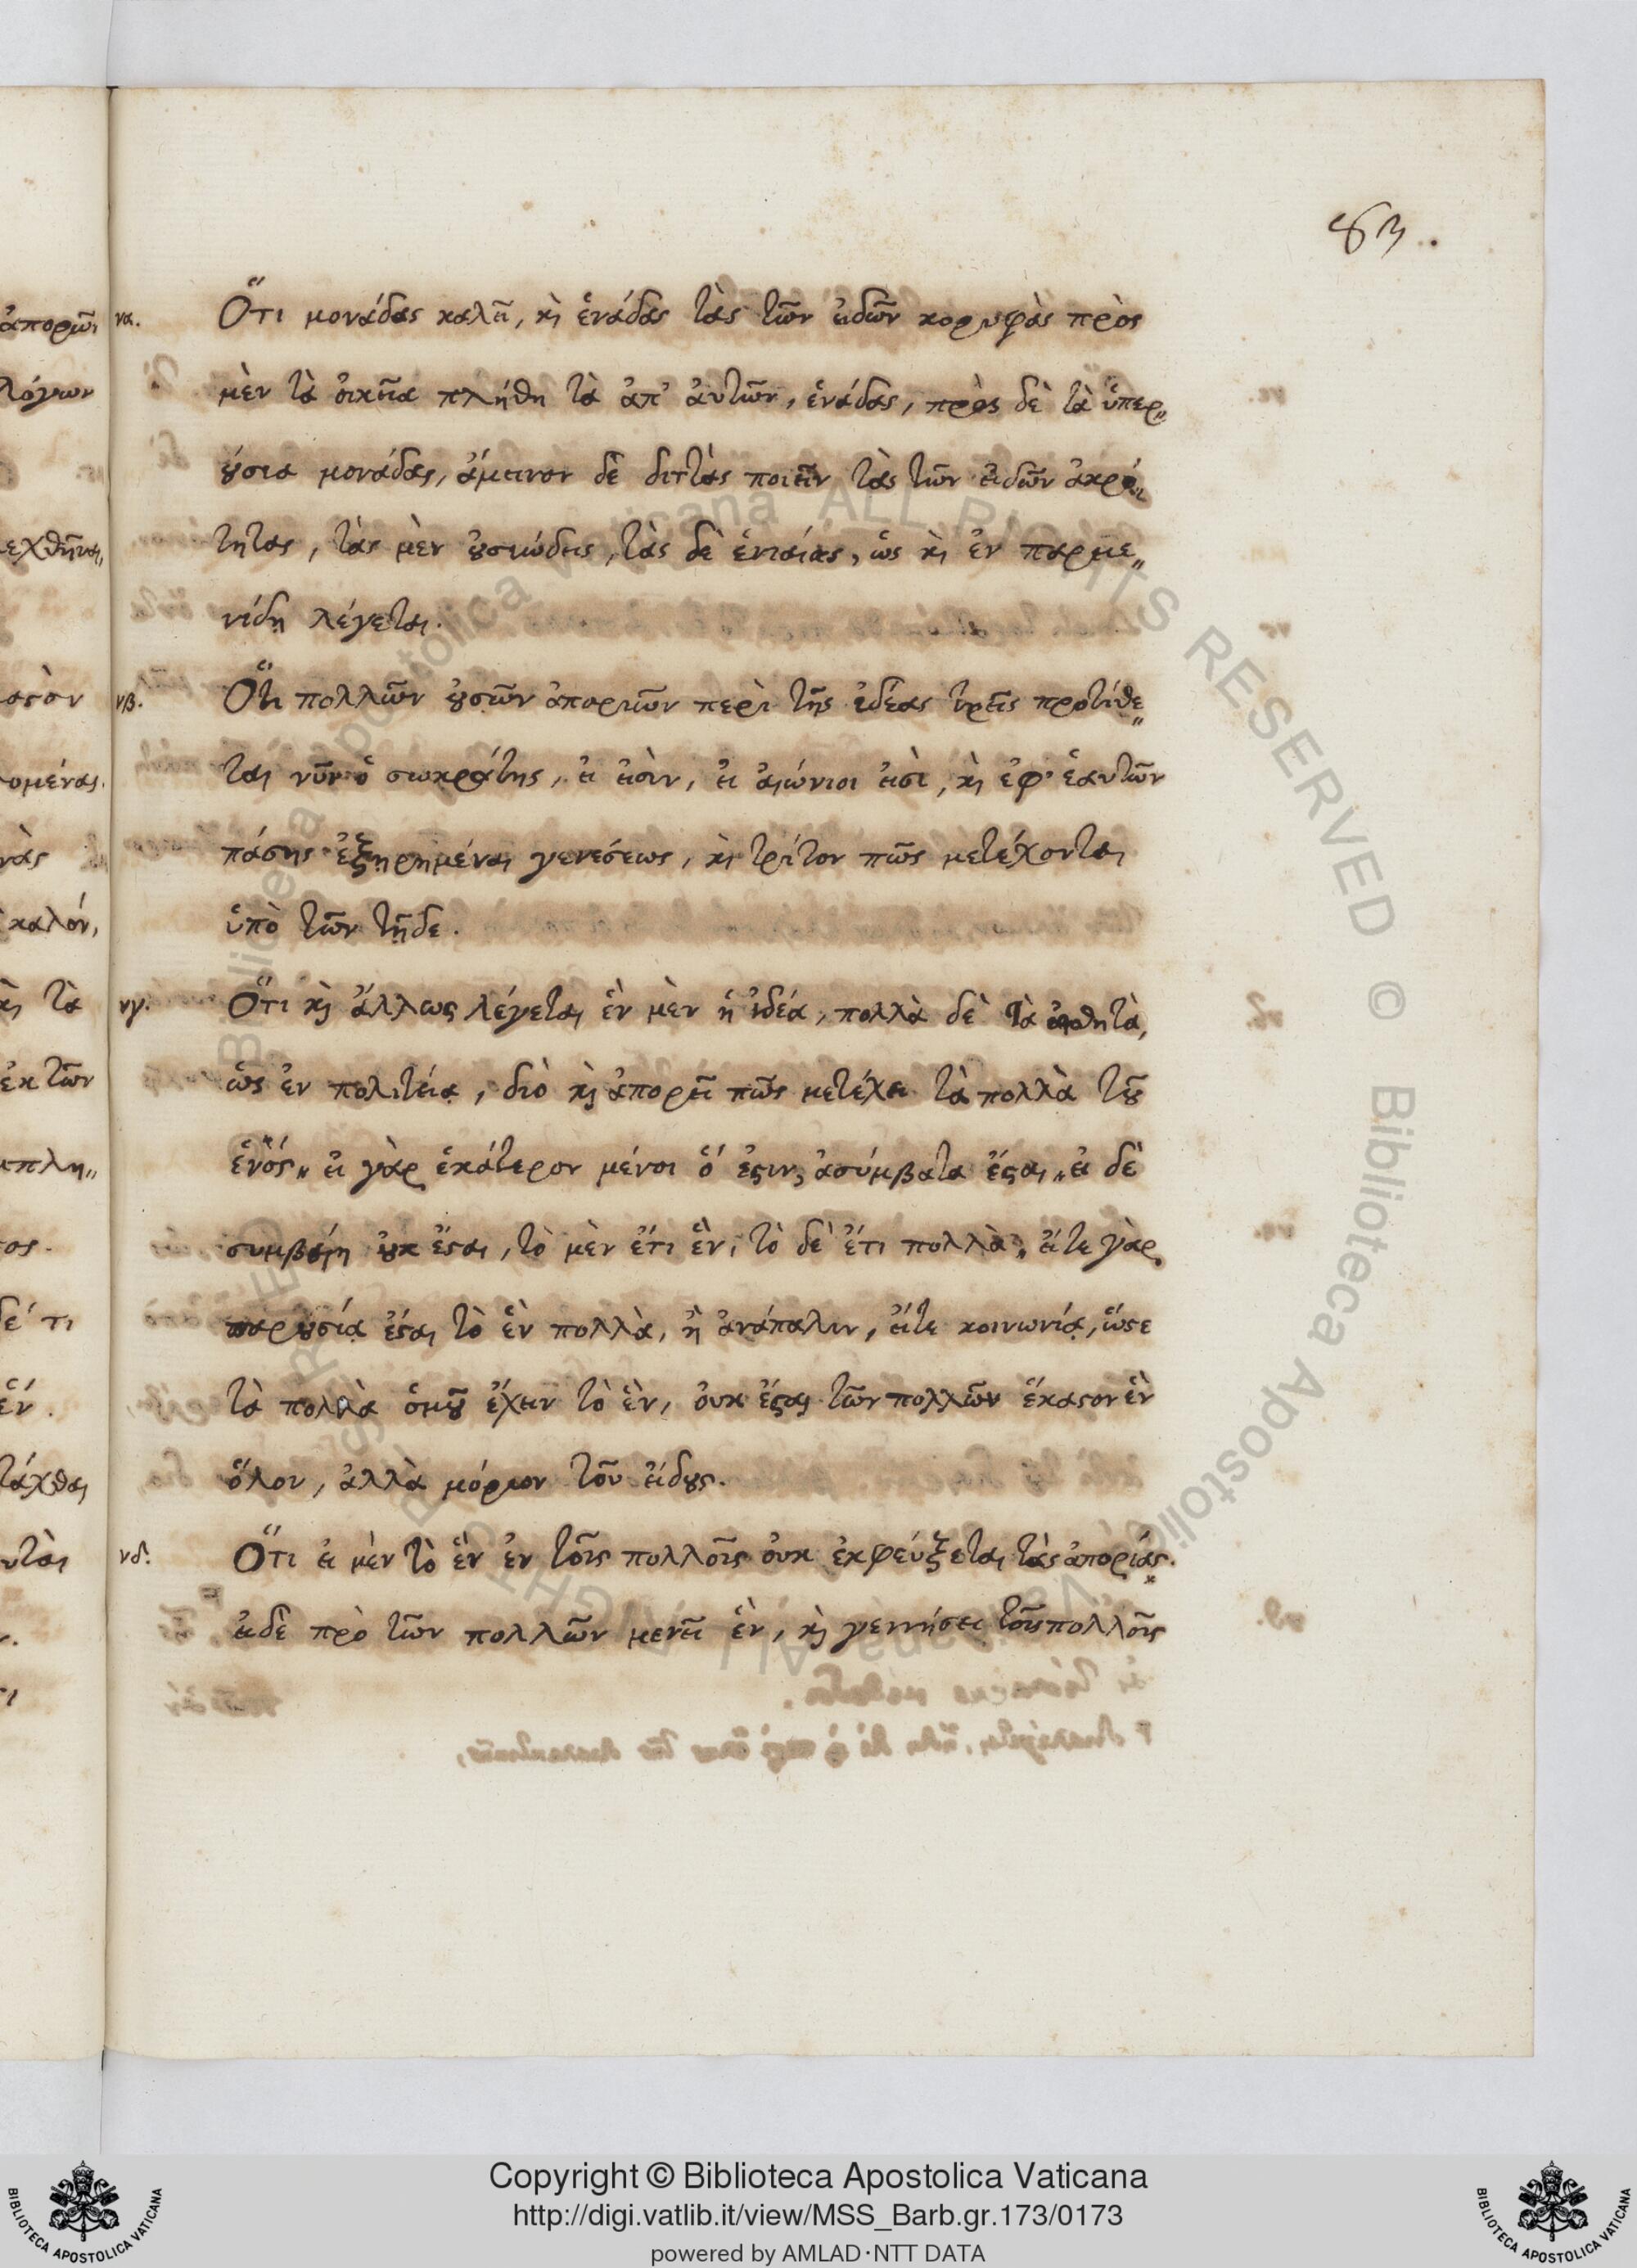 83..
να. Ὅτι μονάδας καλεῖ, κὶ ἑνάδας τὰς τῶν εἰδῶν κορυφὰς πρὸς
μὲν τὰ οἰκεῖα πλήθη τὰ ἀπ' ἀυτῶν, ἑνάδας, πρὸς δὲ τὰ ὑπερ„
ȣ́σια μονάδας, ἄμεινον δὲ διττὰς ποιεῖν τὰς τῶν εἰδῶν ἀκρό„
τητας, τὰς μὲν ȣ̓σιώδεις, τὰς δὲ ἑνιαίας, ὡς κὶ ἐν παρμε„
νίδῃ λέγεται.
νβ. Ὅτι πολλῶν ȣ̓σῶν ἀποριῶν περὶ τῆς ἰδέας τρεῖς προτίθε„
ται νῦν ὁ σωκράτης, εἰ εἰσὶν, εἰ αἰώνιοι εἰσὶ, κὶ ἐφ' ἑαυτῶν
πάσης ἐξῃρημέναι γενέσεως, κὶ τρίτον πῶς μετέχονται
ὑπὸ τῶν τῇδε.
νγ. Ὅτι κὶ ἄλλως λέγεται ἓν μὲν ἡ ἰδέα, πολλὰ δὲ τὰ αἰσθητὰ,
ὡς ἐν πολιτείᾳ, διὸ κὶ ἀπορεῖ πῶς μετέχει τὰ πολλὰ τȣ͂
ἑνός„ εἰ γὰρ ἑκάτερον μένοι ὅ ἐϛιν, ἀσύμβατα ἔϛαι„ εἰ δὲ
συμβαίη ȣ̓κ ἔϛαι, τὸ μὲν ἔτι ἓν, τὸ δὲ ἔτι πολλὰ, εἴτε γὰρ
παρȣσίᾳ ἔϛαι τὸ ἓν πολλὰ, ἢ ἀνάπαλιν, εἴτε κοινωνίᾳ, ὥϛε
τὰ πολλὰ ὁμȣ͂ ἔχειν τὸ ἓν, ὀυκ ἔϛαι τῶν πολλῶν ἕκαϛον ἓν
ὅλον, ἀλλὰ μόριον τοῦ εἴδȣς.
νδ. Ὅτι εἰ μὲν τὸ ἓν ἐν τοῖς πολλοῖς ὀυκ ἐκφεύξεται τὰς ἀπορίας.
εἰ δὲ πρὸ τῶν πολλῶν μενεῖ ἓν, κὶ γεννήσει τοῖς πολλοῖς
Copyright © Biblioteca Apostolica Vaticana
http://digi.vatlib.it/view/MSS_Barb.gr.173/0173
powered by AMLAD·NTT DATA